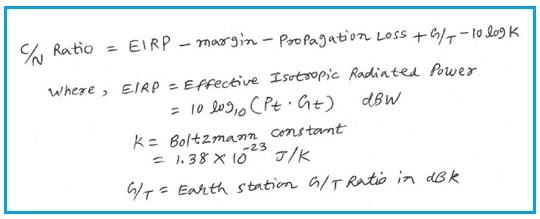 C/N Ratio = EIRP - margin - Propagation Loss + G/T - 10 log K
Where, EIRP = Effective Isotropic Radiated Power
= 10 log10 (Pt · Gt) dBW
K = Boltzmann constant
= 1.38 × 10^-23 J/K
G/T = Earth station G/T Ratio in dBK